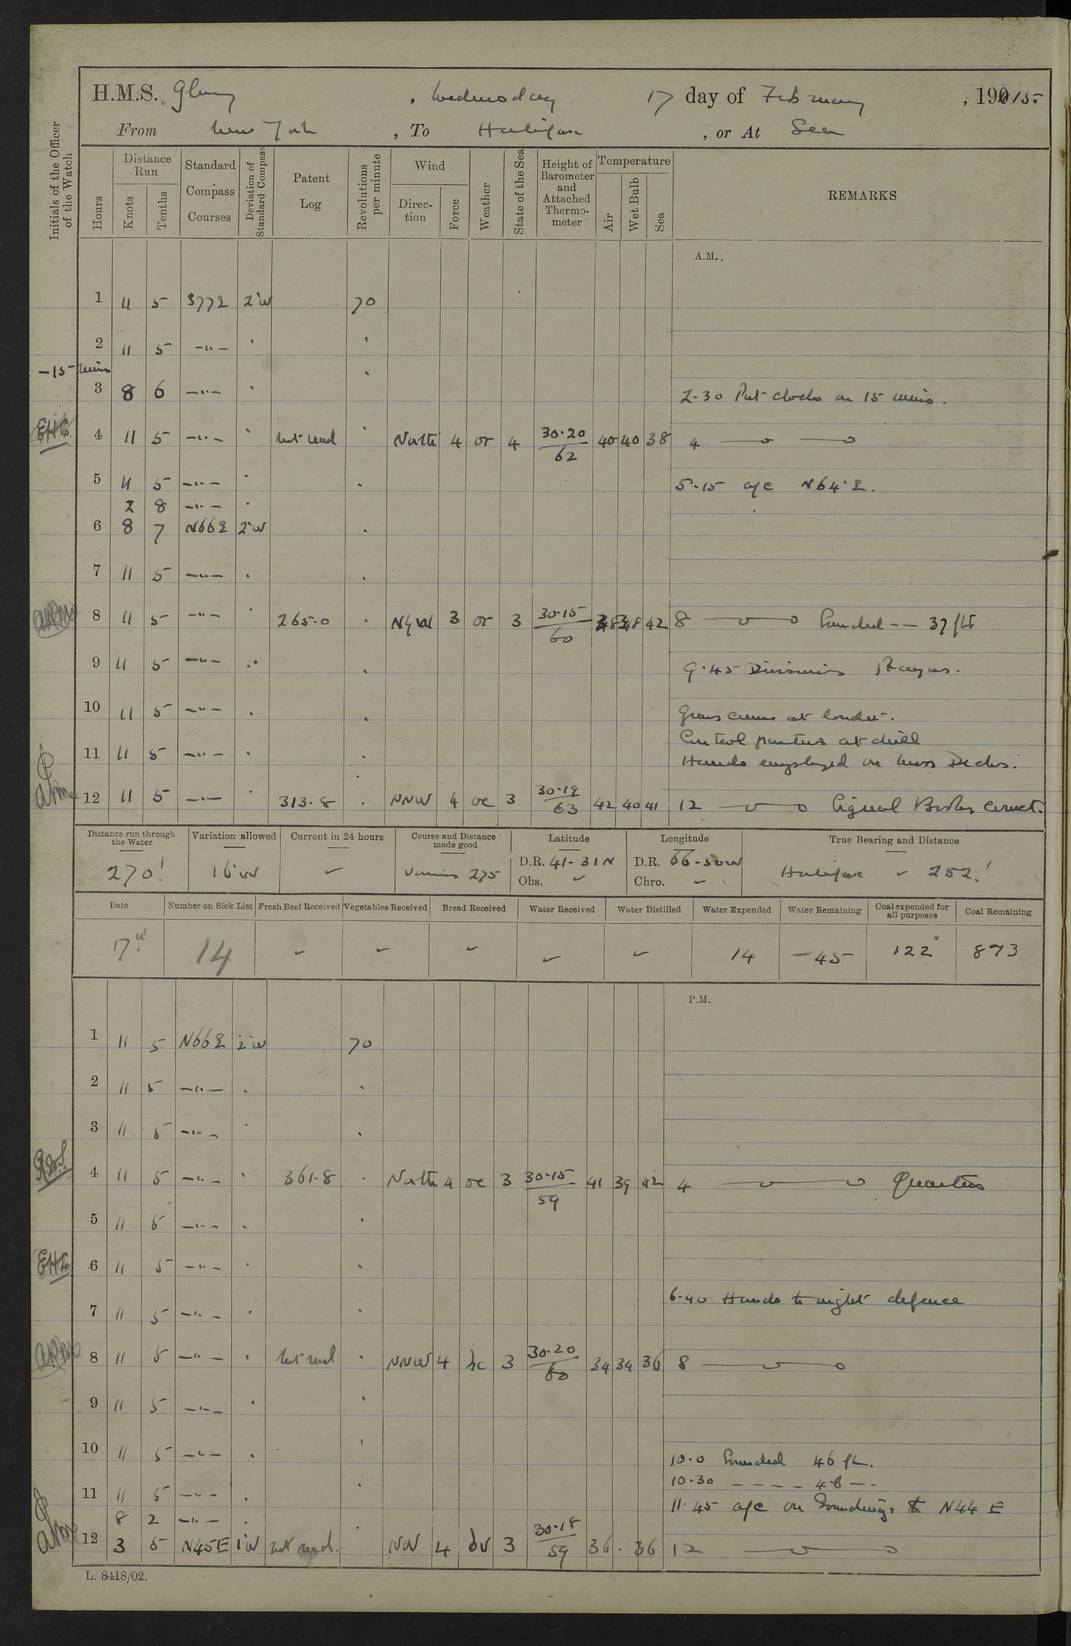 H.M.S. Glory, Wednesday 17 day of February, 1915
From New York, To Halifax, or At Sea
Initials of the Officer of the Watch
Hours
Distance Run
Knots Tenths
Standard Compass Courses
Deviation of Standard Compass
Patent Log
Revolutions per minute
Wind
Direction Force
Weather
State of the Sea
Height of Barometer and Attached Thermometer
Temperature
Air Wet Bulb Sea
REMARKS
A.M.
1 11 5 S77E 2°W 70
2 11 5 —"—
—15 mins
3 8 6 —"— 2.30 Put clocks on 15 mins.
4 11 5 —"— not read North 4 or 4 30.20/62 40 40 38 4
5 11 5 —"— 5.15 a/c N64°E.
2 8 —"—
6 8 7 N66E 2°W
7 11 5 —"—
8 11 5 —"— 265.0 3 or 3 30.15/60 42 8 Sounded —— 37
9 11 5 —"— 9.45 Divisions Prayers.
10 11 5 —"— Guns crews at loader.
Control parties at drill
11 11 5 —"— Hands employed on Mess Decks.
12 11 5 —"— 313.8 NNW 4 oc 3 30.19/63 42 40 41 12 Signal Books correct.
Distance run through the Water
Variation allowed
Current in 24 hours
Course and Distance made good
Latitude
Longitude
True Bearing and Distance
270' 16°W Various 275 D.R. 41-31N D.R. 66-50W Halifax 252'
Obs. Chro.
Date Number on Sick List Fresh Beef Received Vegetables Received Bread Received Water Received Water Distilled Water Expended Water Remaining Coal expended for all purposes Coal Remaining
17th 14 14 —45 122 873
P.M.
1 11 5 N66E 2°W 70
2 11 5 —"—
3 11 5 —"—
4 11 5 —"— 361.8 North 4 oc 3 30.15/59 41 39 42 4 Quarters
5 11 5 —"—
6 11 5 —"—
6.40 Hands to night defence
7 11 5 —"—
8 11 5 —"— not read NNW 4 bc 3 30.20/60 34 34 36 8
9 11 5 —"—
10 11 5 —"— 10.0 Sounded 46 fm.
10.30 — — — — 46 —
11 11 5 —"— 11.45 a/c on Soundings to N44E
8 2 —"—
12 3 5 N45E 1°W not read. NW 4 bv 3 30.18/59 36 . 36 12
L. 8418/02.